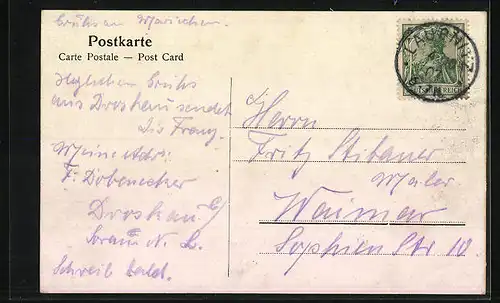 Postkarte
Carte Postale — Post Card
Herzlichen Gruß
aus Droskau sendet
Dir Franz
Meine Adr:
F. Dobenecker
Droskau
Sorau N. L.
Schreib bald.
Herrn
Fritz Stibaner
Maler
Weimar
Sophien Str 10.